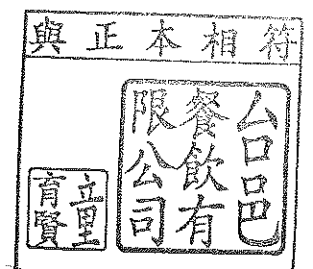 與正本相符
厶口口巴
餐飲有
限公司
童
育賢